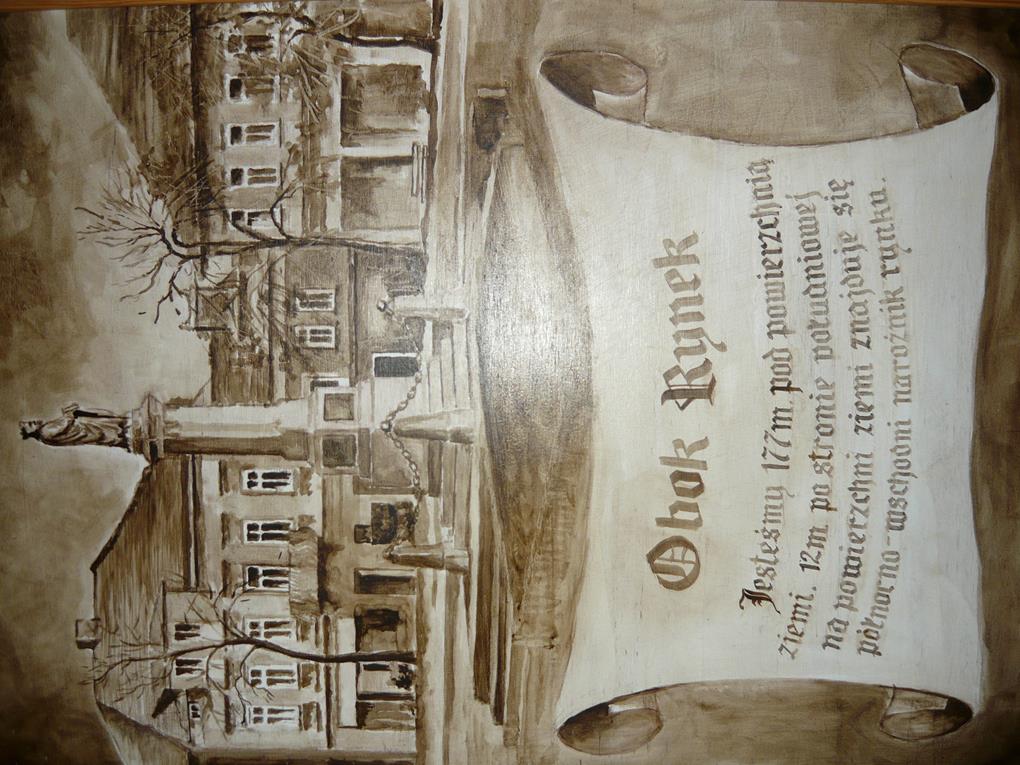 Obok Rynek
Jesteśmy 177m pod powierzchnią
ziemi. 12m po stronie południowej
na powierzchni ziemi znajduje się
północno-wschodni narożnik rynku.